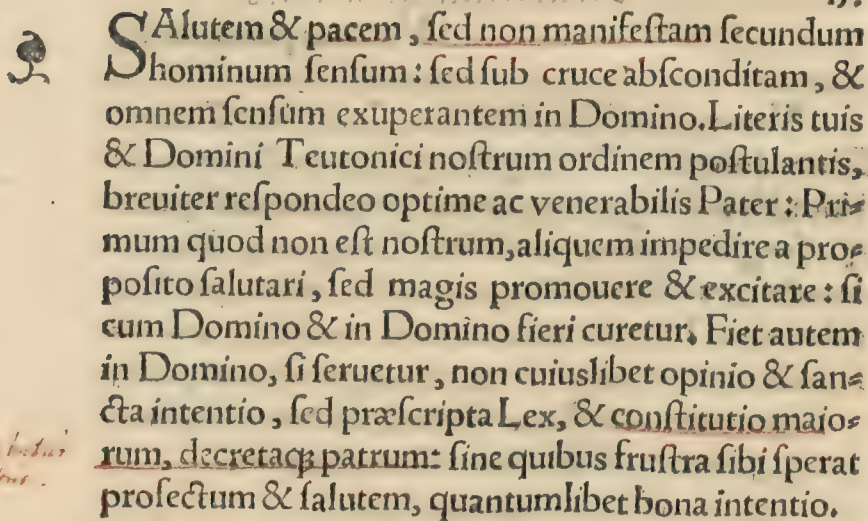 SAlutem & pacem, ſed non manifeſtam ſecundum
hominum ſenſum: ſed ſub cruce abſconditam, &
omnem ſenſum exuperantem in Domino. Literis tuis
& Domini Teutonici noſtrum ordinem poſtulantis,
breuiter reſpondeo optime ac venerabilis Pater: Pri⸗
mum quod non eſt noſtrum, aliquem impedire a pro⸗
poſito ſalutari, ſed magis promouere & excitare: ſi
cum Domino & in Domino fieri curetur. Fiet autem
in Domino, ſi ſeruetur, non cuiuslibet opinio & ſan⸗
cta intentio, ſed præſcripta Lex, & conſtitutio maio⸗
rum, decretaqꝫ patrum: ſine quibus fruſtra ſibi ſperat
profectum & ſalutem, quantumlibet bona intentio.